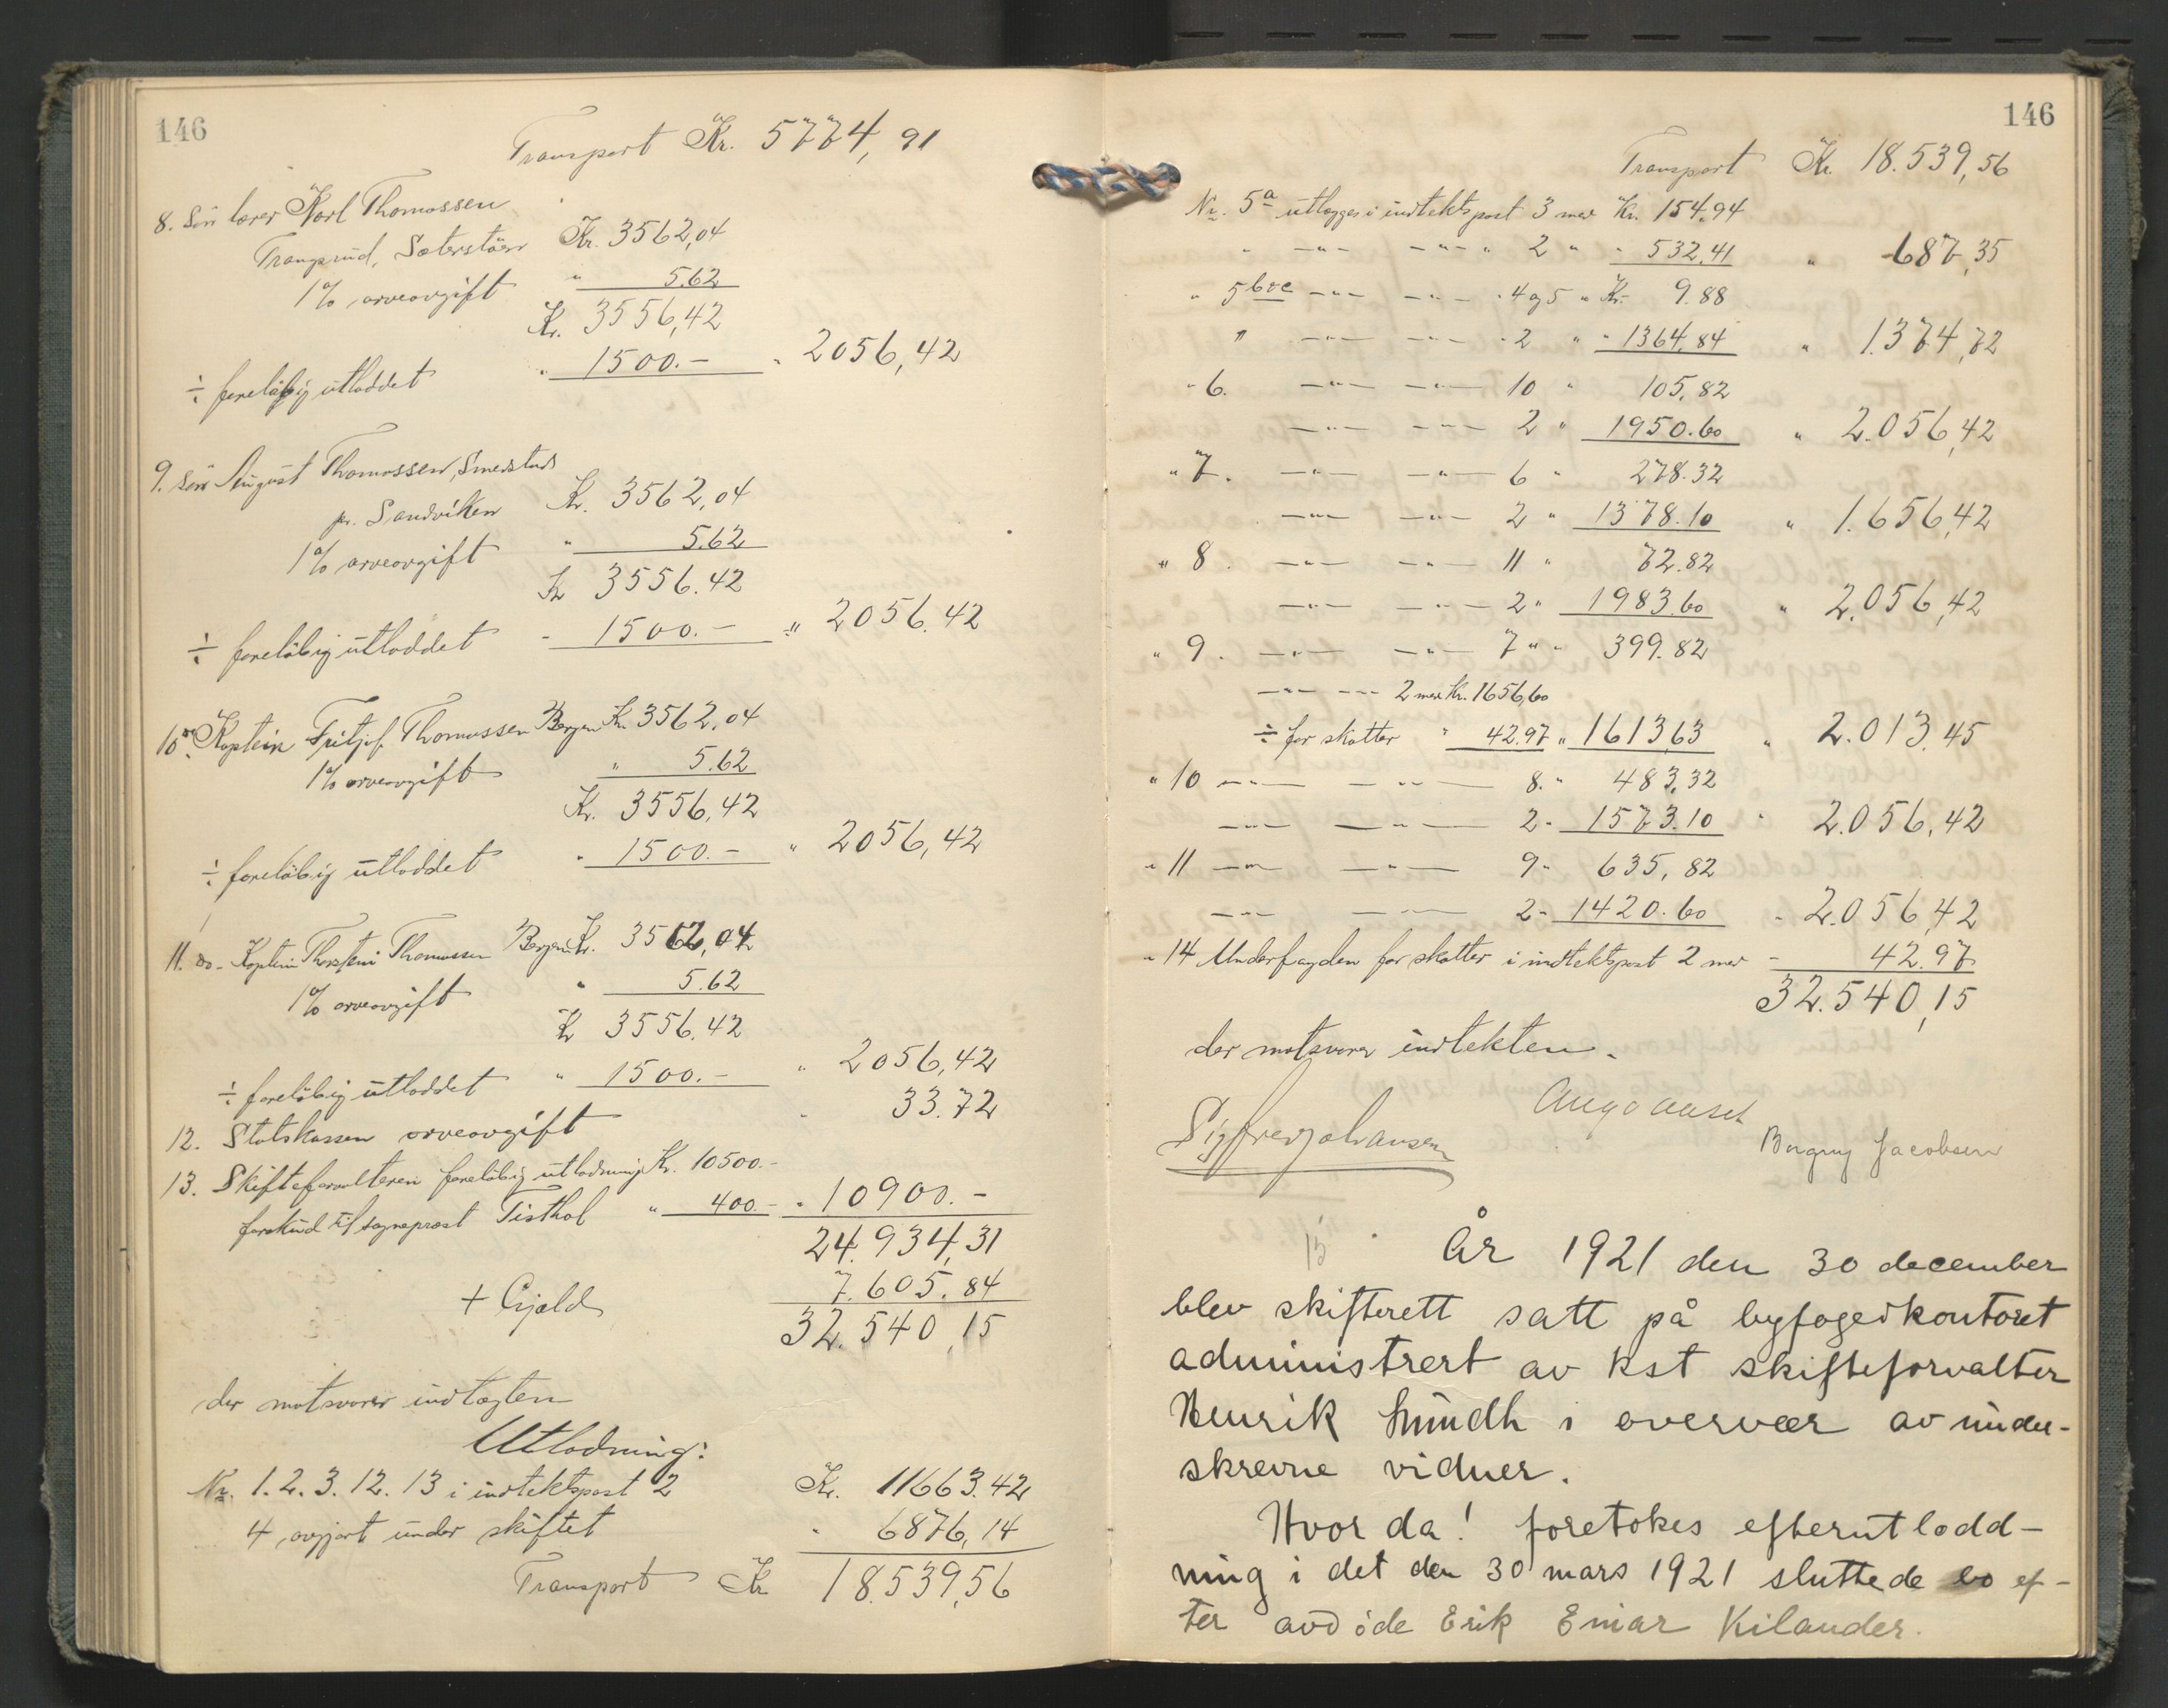 146
Transport Kr. 5774,91
8. Søn lærer Karl Thomassen
Trangsrud, Sæterstøen Kr. 3562,04
1% arveavgift " 5.62
Kr. 3556,42
÷ foreløbig utloddet " 1500.- " 2056,42
9. Søn August Thomassen, Smestad
pr. Sandviken Kr. 3562,04
1% arveavgift " 5.62
Kr 3556.42
÷ foreløbig utloddet - 1500.- " 2056.42
10. do Kaptein Fritjof Thomassen Bergen Kr. 3562,04
1% arveavgift " 5.62
Kr. 3556,42
÷ foreløbig utloddet " 1500.- " 2056,42
11. do - Kaptein Thorstein Thomassen Bergen Kr. 3562,04
1% arveavgift " 5.62
Kr 3556.42
÷ foreløbig utloddet " 1500.- " 2056,42
12. Statskassen arveavgift - 33.72
13. Skifteforvalteren foreløbig utlodning Kr. 10500.-
forskud til sogneprest Tisthal " 400.- " 10900.-
24.934,31
+ Gjæld 7.605.84
32.540,15
der motsvarer indtægten
Utlodning:
Nr. 1. 2. 3. 12. 13 i indtektspost 2 Kr. 11663.42
4 avgjort under skiftet " 6876,14
Transport Kr 18.539,56
146
Transport Kr. 18.539,56
Nr. 5a utlægges i indtektspost 3 mer Kr. 154.94
" -"- -"- " 2 " " 532.41 " 687,35
" 5boc -"- -"- " 4 og 5 " Kr. 9.88
" -"- -"- " 2 " " 1364,84 " 1.374,72
" 6. -"- -"- 10 " 105,82
-"- -"- 2 " 1950.60 " 2.056,42
" 7. -"- -"- 6 " 278.32
-"- -"- 2 " 1378.10 " 1.656,42
" 8. -"- -"- 11 " 72.82
-"- -"- 2 " 1983.60 " 2.056,42
" 9. -"- -"- 7 " " 399.82
-"- -"- 2 mer Kr. 1656,60
÷ for skatter " 42.97 " 1613,63 " 2.013.45
" 10 -"- -"- 8. " 483,32
-"- -"- 2 - 1573.10 " 2.056,42
" 11 -"- -"- 9 - 635,82
-"- -"- 2 - 1420.60 - 2.056,42
" 14 Underfogden for skatter i indtektspost 2 mer - 42.97
32.540,15
der motsvarer indtekten.
Sigfred Johansen
Jacobsen
År 1921 den 30 december
blev skifterett satt på byfogedkontoret
administrert av kst skifteforvalter
Henrik Lundh i overvær av under-
skrevne vidner.
Hvor da! foretokes efterutlodd-
ning i det den 30 mars 1921 sluttede bo ef-
ter avdøde Erik Einar Kilander.